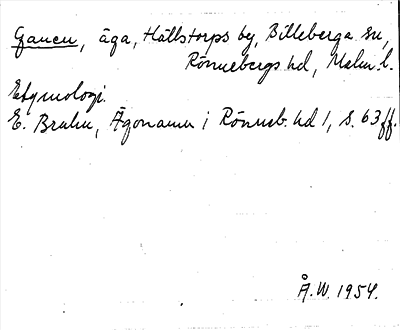 Gauen, äga, Hällstorps by, Billeberga sn,
Rönnebergs hd, Malm. l.
Etymologi.
E. Bruhn, Ägonamn i Rönneb. hd 1, s. 63 ff.
Å.W. 1954.